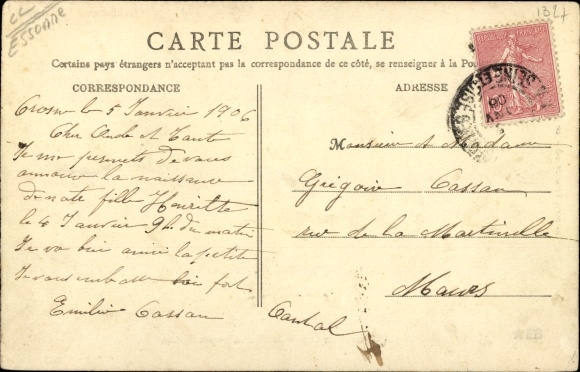 CC
ESSONNE
1327
CARTE POSTALE
Certains pays étrangers n'acceptant pas la correspondance de ce côté, se renseigner à la Poste
CORRESPONDANCE
Crosne le 5 Janvier 1906
Cher Oncle et Tante
Je me permets de vous
annoncer la naissance
de notre fille Henriette
le 4 Janvier 9h. du matin
Je va bien ainsi la petite
Je vous embrasse bien fort
Emilie Cassan
ADRESSE
Monsieur et Madame
Grégoire Cassan
rue de la Martinelle
Maurs
Cantal
SEINE-ET-OISE
06